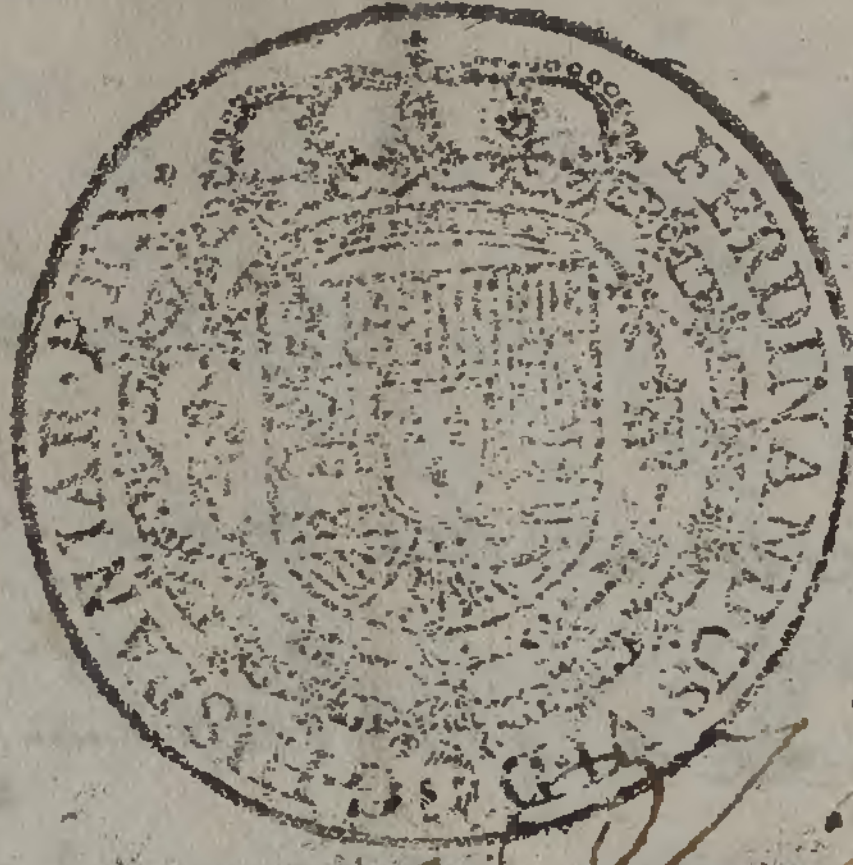 FERDINAND. VI. D. G. HISPANIAR. REX.